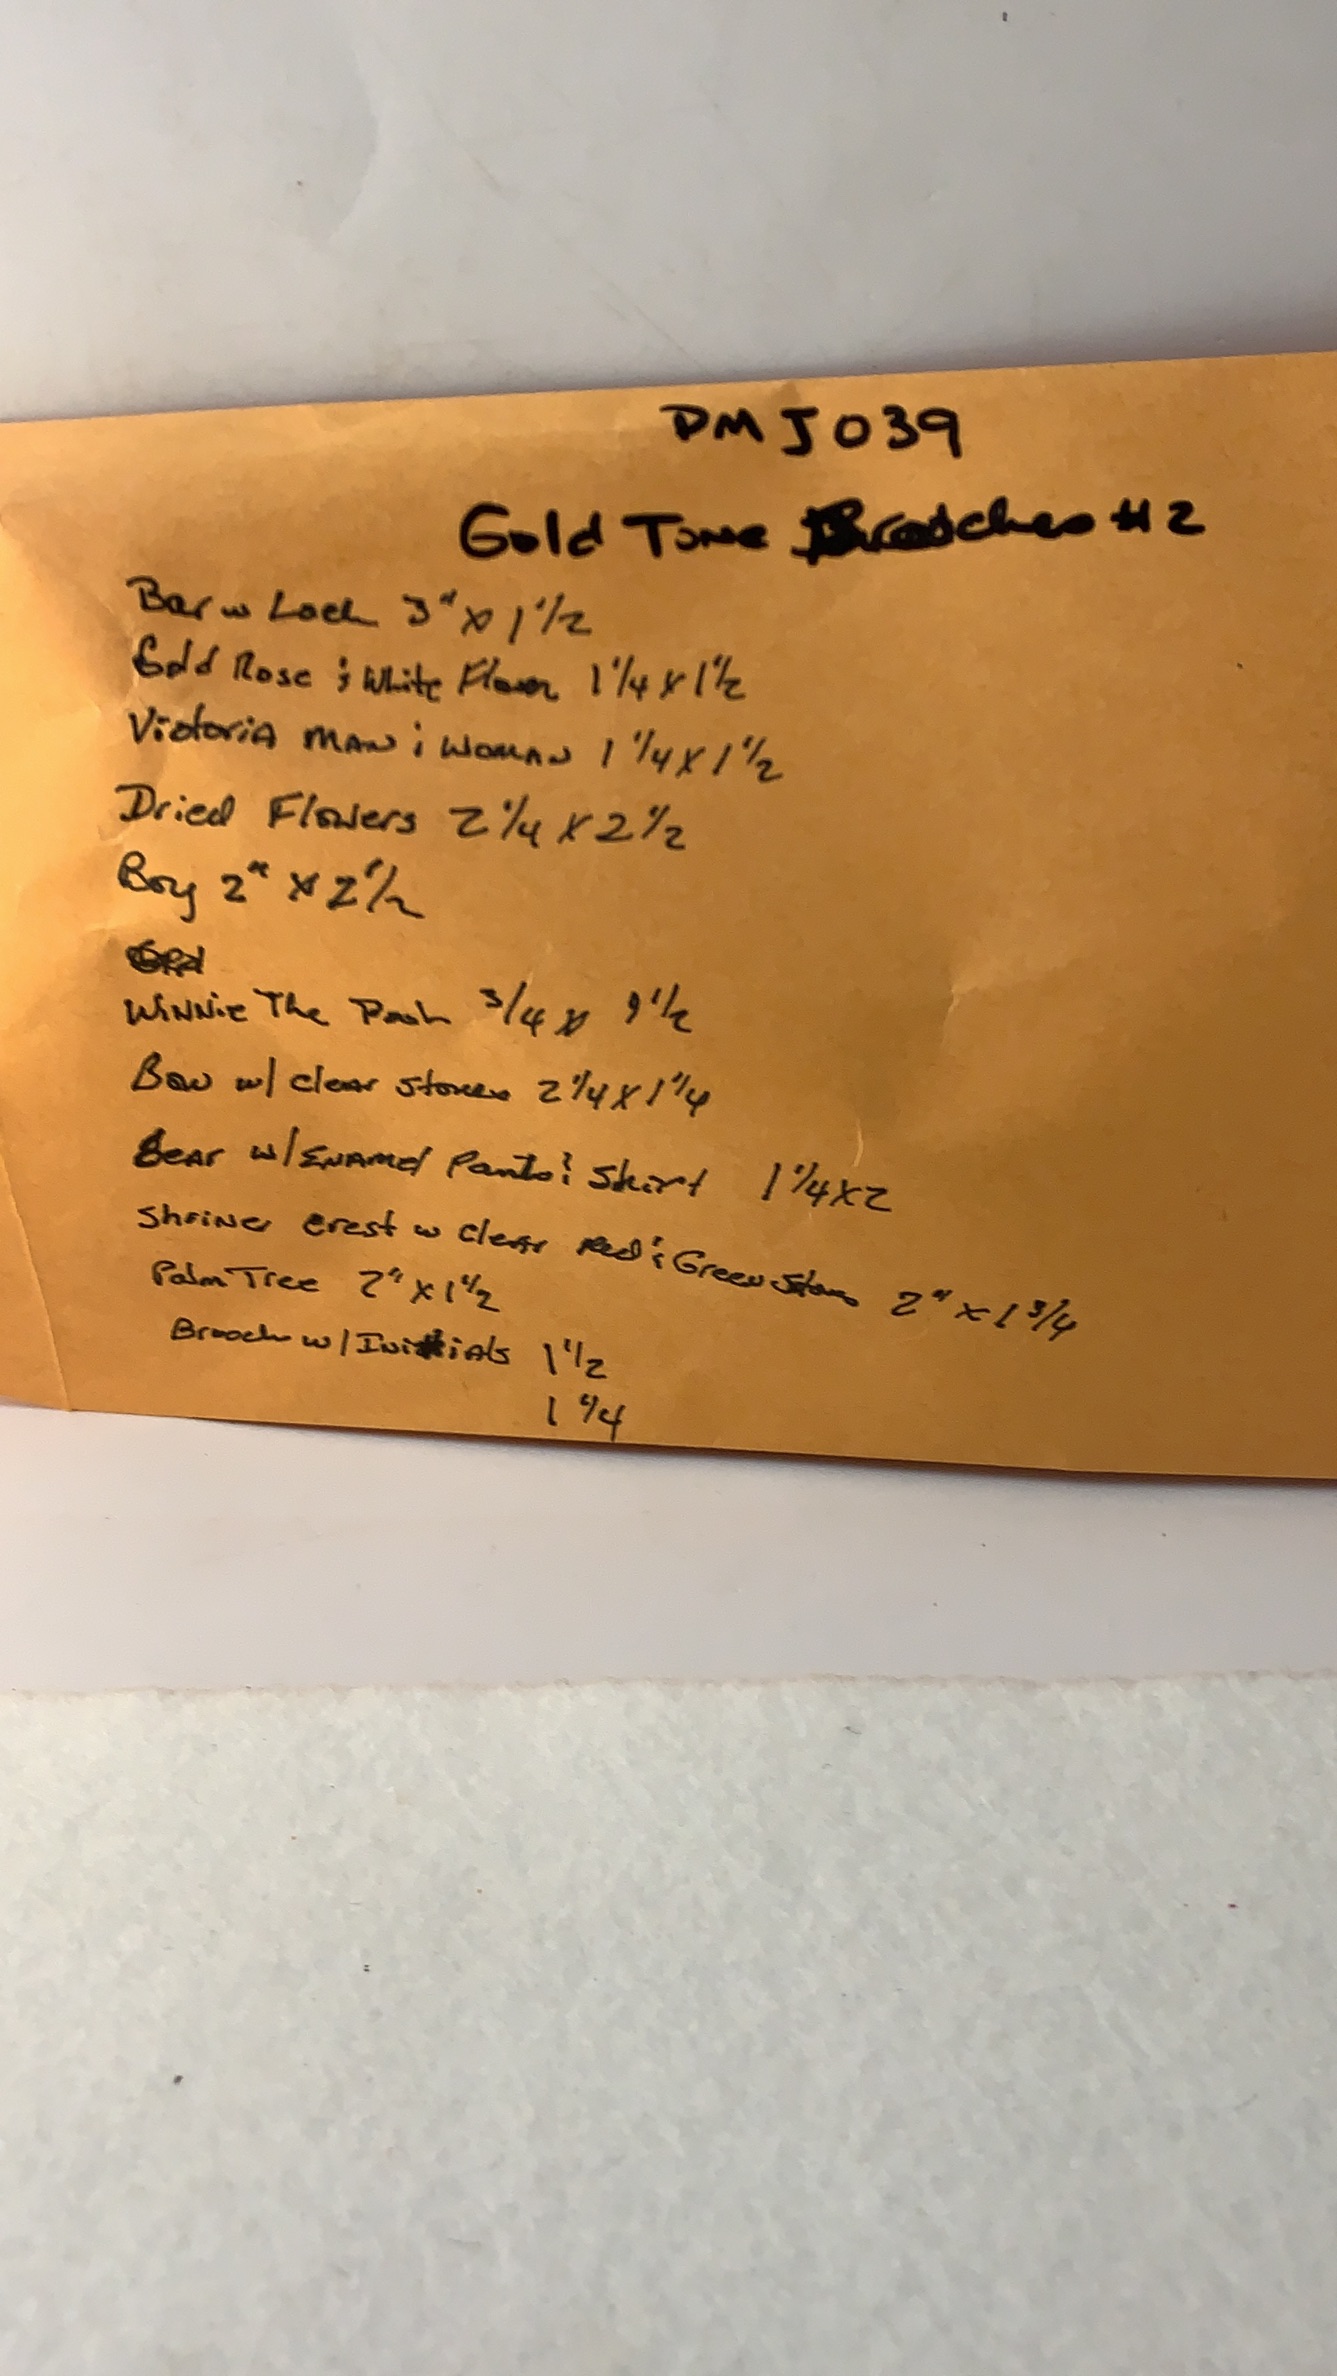 DMJ039
Gold Tone Brooches #2
Bar w Lock 3" x 1 1/2
Gold Rose & White Flower 1 1/4 x 1 1/2
Victoria MAN & WOMAN 1 1/4 x 1 1/2
Dried Flowers 2 1/4 x 2 1/2
Boy 2" x 2 1/2
WINNIE The Pooh 3/4 x 1/2
Bow w/ clear stones 2 1/4 x 1 1/4
Bear w/ ENAMEl Pants & Skirt 1 1/4 x 2
Shriner crest w Clear Red & Green Stones 2" x 1 3/4
Palm Tree 2" x 1 1/2
Brooch w/ Initials 1 1/2
1 1/4